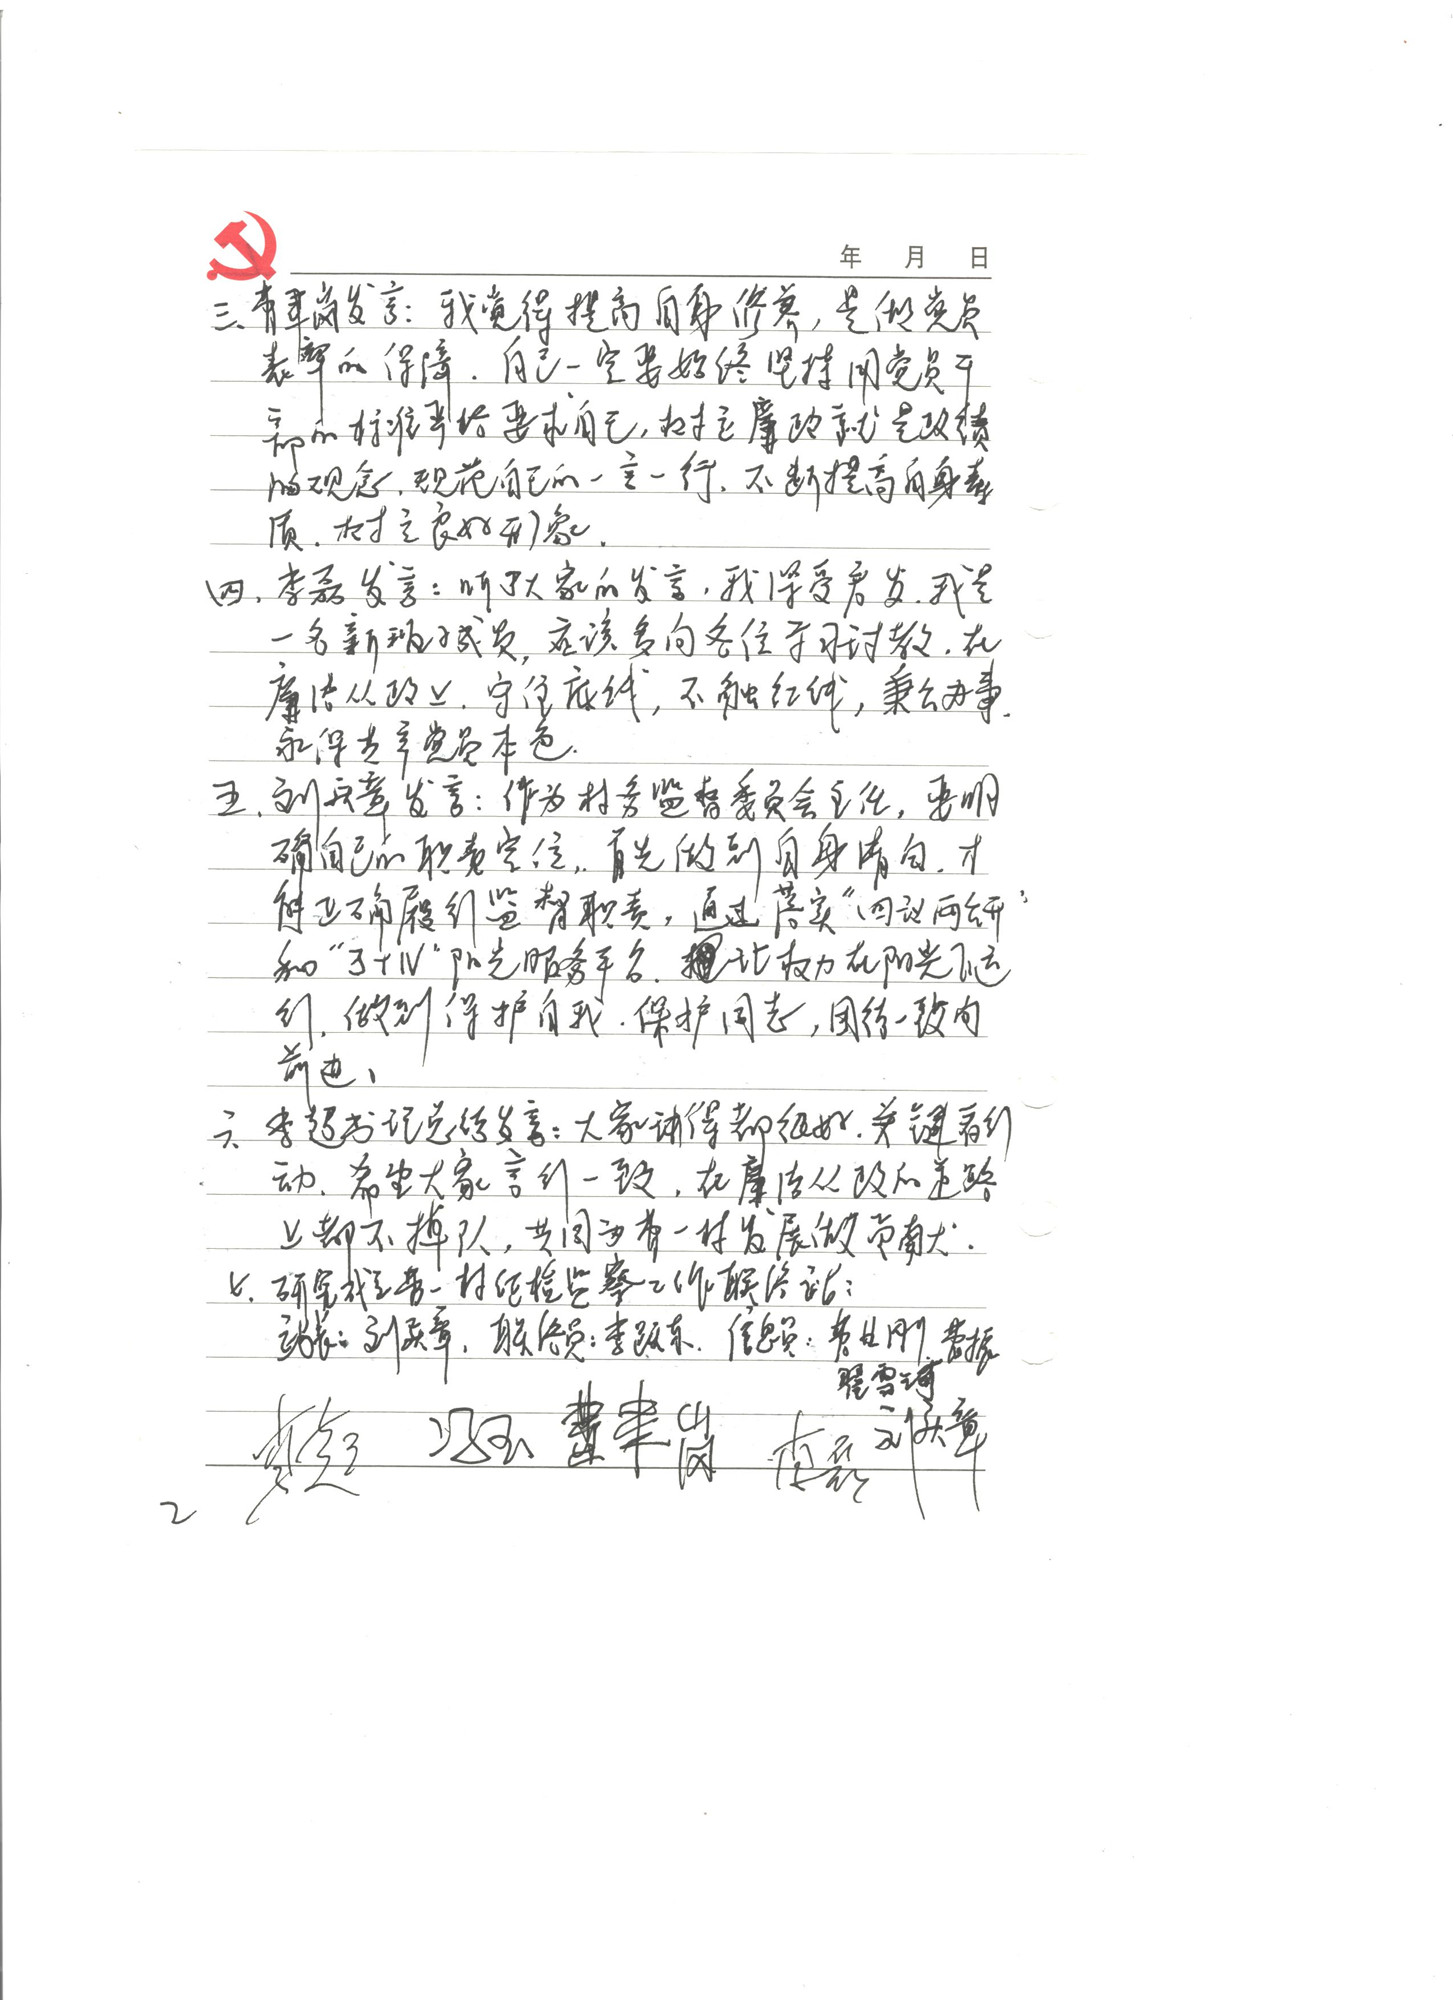 年 月 日
三、费聿岗发言：我觉得提高自身修养，是做党员
表率的保障．自己一定要始终坚持用党员干
部的标准严格要求自己，树立廉政就是政绩
的观念．规范自己的一言一行．不断提高自身素
质．树立良好形象．
四．李磊发言：听了大家的发言，我深受启发．我是
一名新班子成员，应该多向各位学习讨教．在
廉洁从政上．守住底线，不触红线，秉公办事．
永保共产党员本色．
五．刘庆章发言：作为村务监督委员会主任，要明
确自己的职责定位，首先做到自身清白．才
能正确履行监督职责，通过落实“四议两公开”
和“3+N”阳光服务平台．让权力在阳光下运
行．做到保护自我．保护同志，团结一致向
前进、
六、李超书记总结发言：大家讲得都很好．关键看行
动．希望大家言行一致，在廉洁从政的道路
上都不掉队，共同为费一村发展做贡献．
七．研究成立费一村纪检监察工作联络站：
站长：刘庆章．联络员：李跃东．信息员：费世刚．费振
翟雪琦
李超 冯玉 费聿岗 李磊 刘庆章
2